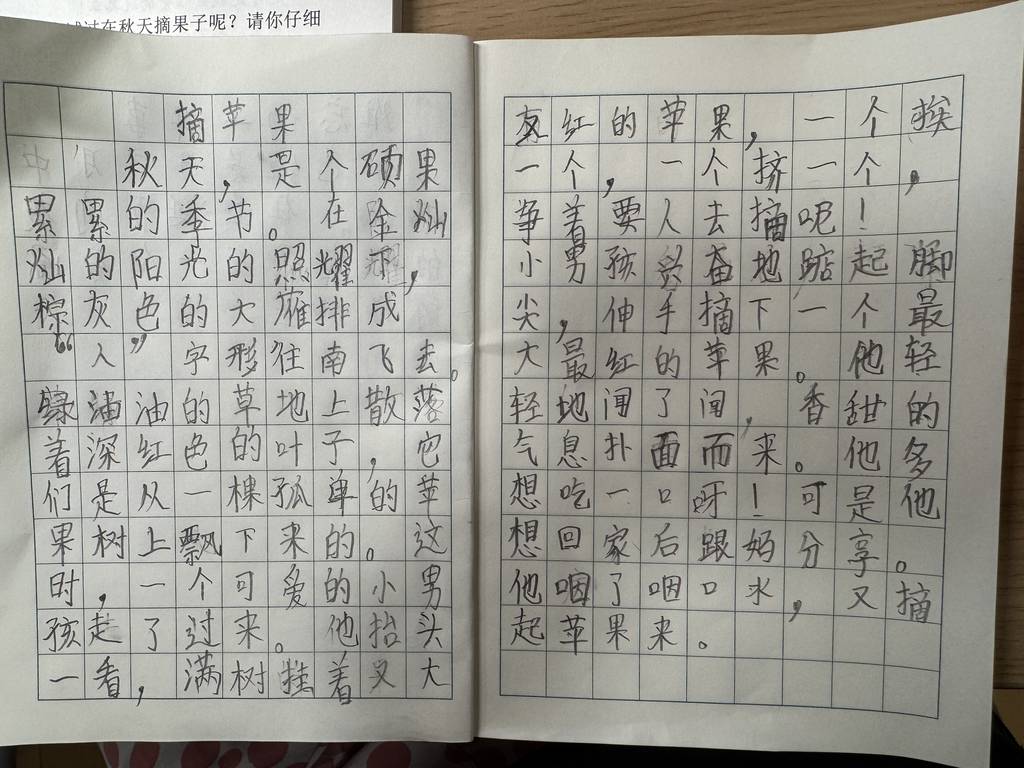 过在秋天摘果子呢？请你仔细
摘苹果
秋天，是个硕果
累累的季节。在金灿
灿的阳光的照耀下，
棕灰色的大雁排成
“人”字形往南飞去。
绿油油的草地上散落
着深红色的叶子，它
们是从一棵孤单的苹
果树上飘下来的。这
时，一个可爱的小男
孩走了过来。他抬头
一看，满树挂着又大
又红的苹果，一个挨
一个，一个挤一个，
争着要人去摘呢！
小男孩兴奋地踮起脚
尖，伸手摘下一个最
大最红的苹果。他轻
轻地闻了闻，香甜的
气息扑面而来。他多
想吃一口呀！可是他
想回家后跟妈分享。
他咽了咽口水，又摘
起苹果来。